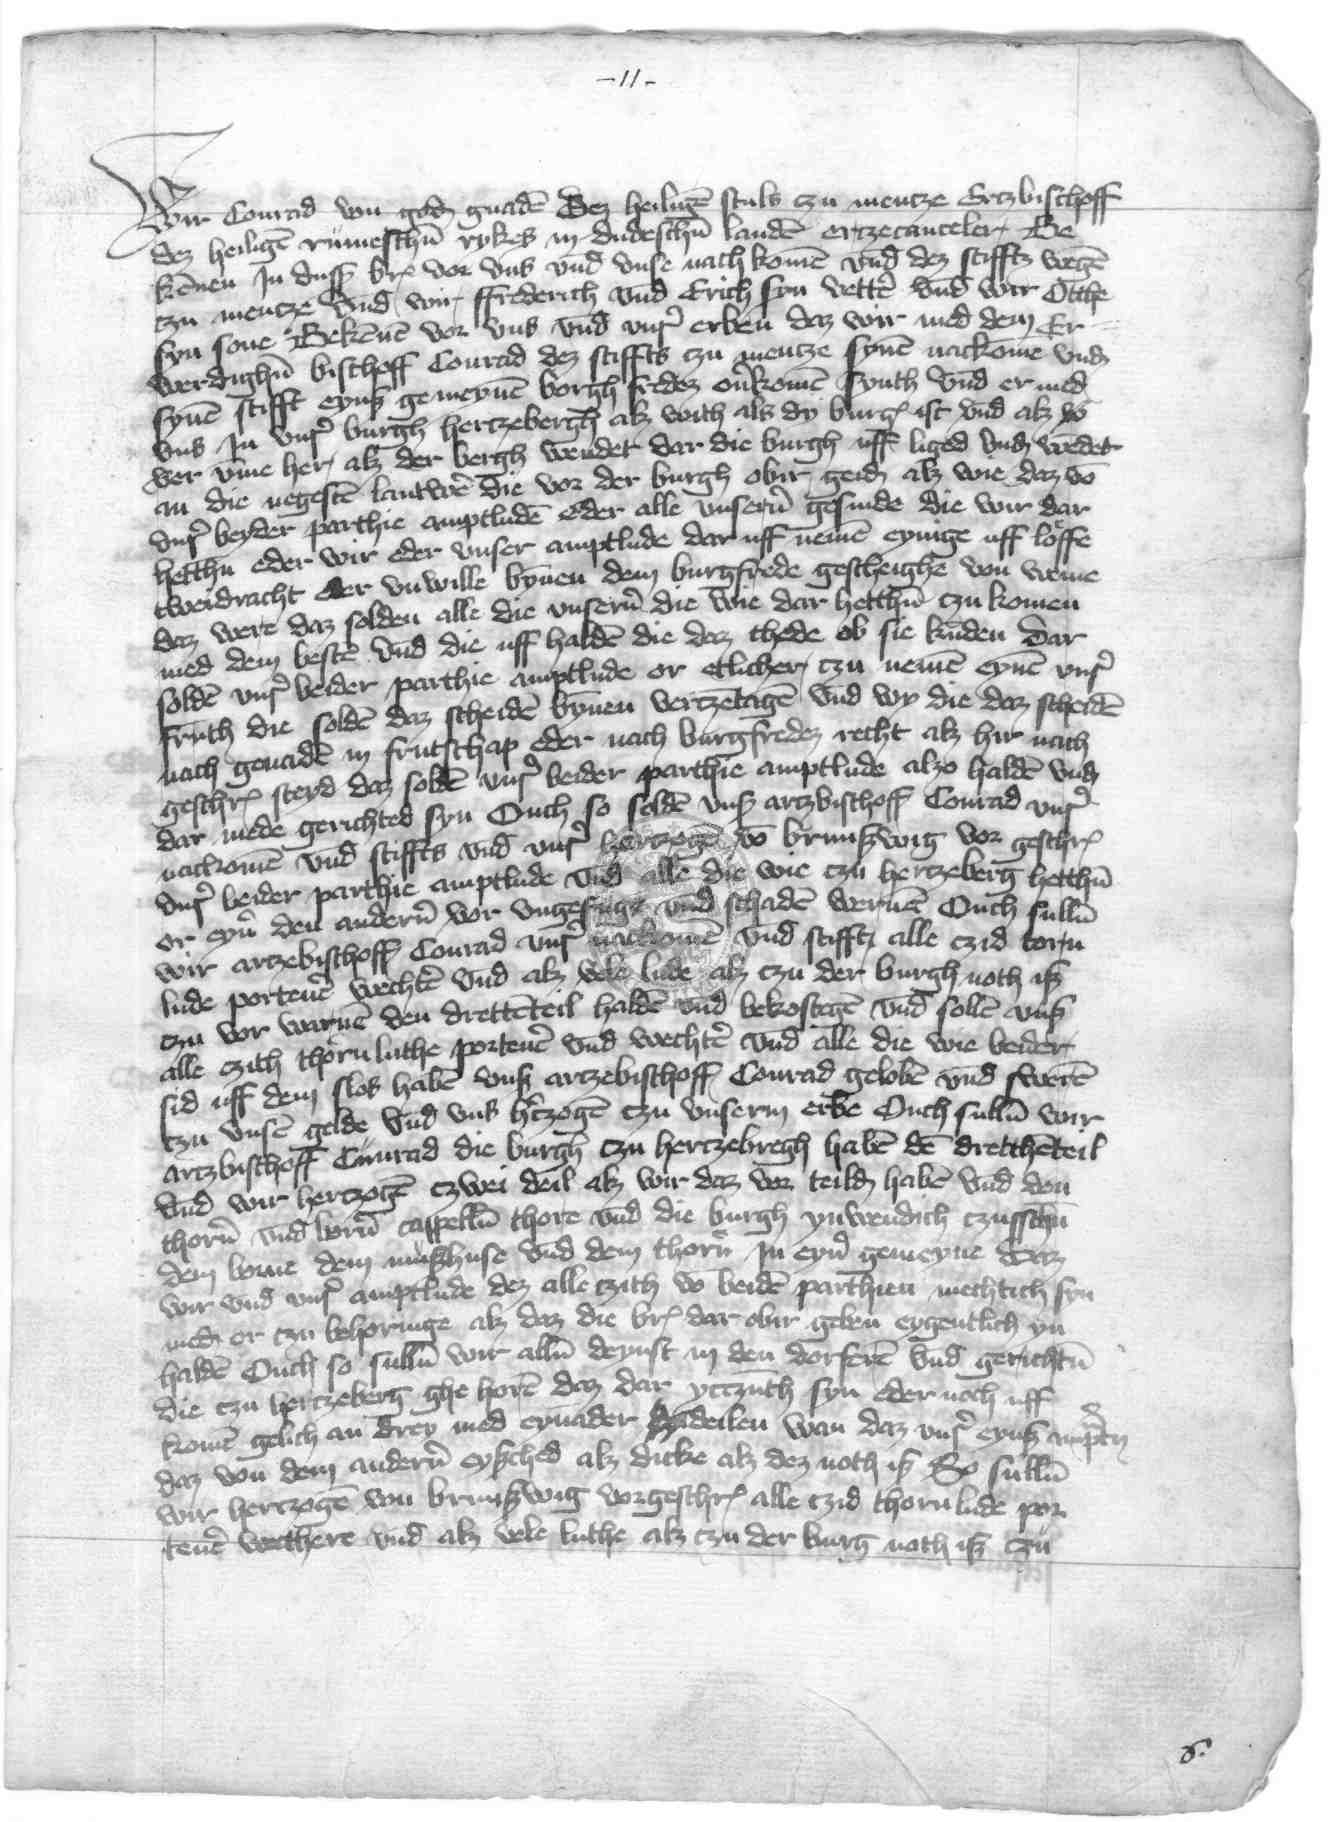 -11-
Wir Conrad von gotz gnadē Dez heiligē stuls czu mentze Ertzbischoff
dez heiligē rümeschū rykes in dudeschū landē ertzecanceler Be
kēnen In duss brˀ vor vns vnd vnse nach komē vnd dez stifftz wegē
czu mentze vnd wir ffrederich vnd Erich syn vettˀ vnd wir Otthe
syn sone Bekēnē vor vns vnd vnsˀ erben daz wir med dem Er
werdighū bischoff Conrad dez stiffts czu mentze synē nackome vnd
synē stifft eynß gemeynē borgh fredez ouˀkomē synth vnd er med
vns In vnsˀ burgh hertzebergh alz with als dy burgˀ ist vnd alz
ver vme her alz der bergh wendet dar die burgh uff liged vnd wedet
an die negestē lantwˀe die vor der burgh obir geid alz wie daz vō
vnsˀ beyder parthie amptludē eder alle vnserū gesinde die wir dar
hetthū eder wir eder vnser amptlude dar uff nemē eynige uff löffe
tweidracht eder vnwille bȳnen dem burgfrede gescheighē von weme
daz were daz solden alle die vnserū die wie dar hetthū czu komen
med dem bestē vnd die uff haldē die daz thede ob sie kūden Dar
soldē vnsˀ beider parthie amptlude or etlicher czu nemē eynē vnsˀ
frūth die soldē daz scheidē bȳnen vertzetagē vnd wy die daz scheidē
nach genadē in frutschap eder nach burgfredez recht alz hir nach
geschrˀ steyd daz soldē vnsˀ beider parthie amptlude alzo haldē vnd
dar mede gerichted syn Ouch so soldē vnß artzbischoff Conrad vnsˀ
nackomē vnd stiffts vnd vnsˀ hertzogē vō brunßwig vor geschrˀ
vnsˀ beider parthie amptlude vnd alle die wie czu hertzeberg hetthū
or eyn den anderū vor vngefuge vnd schadē wernē Ouch sullū
wir artzebischoff Conrad vnsˀ nackomē vnd stifftz alle czid torn
lude portenˀe wechtē vnd alz vele lude alz czu der burgh noth iß
czu vor warnē den drettēteil haldē vnd bekostegē vnd sollē vnß
alle czith thornluthe portenˀe vnd wechtˀe vnd alle die wie beider
sid uff dem slos habē vnß artzebischoff Conrad gelobē vnd swerē
czu vnsē gelde vnd vns hˀtzogē czu vnserm erbe Ouch sullū wir
artzbischoff Cunrad die burgh czu hertzebregh habē dē dretthēteil
vnd wir hertzogē czwei deil alz wir daz vor teild habē vnd den
thorū vnd borū cappellū thore vnd die burgh ynwendich czusschū
dem borne dem mußhuse vnd dem thorū In eynˀ gemeyne Daz
wir vnd vnsˀ amptlude dez alle czith vō beidē parthien mechtich syn
med or czu behoringe alz daz die brˀ dar obir geben eygentlich yn
haldē Ouch so sullū wir allū deynst in den dorferē vnd gerichtū
die czu hertzeberg ghe horē daz dar ytczūth syn eder noch uff
komē gelich an drey med eynāder deilen wan daz vnsˀ eynß
daz von dem anderū eysched alz dicke alz dez noth iß So sullū
wir hertzogē von brunßwig vorgeschrˀ alle czid thornlude por
tenˀe wecthere vnd alz vele luthe alz czu der burg noth iß czu
6.